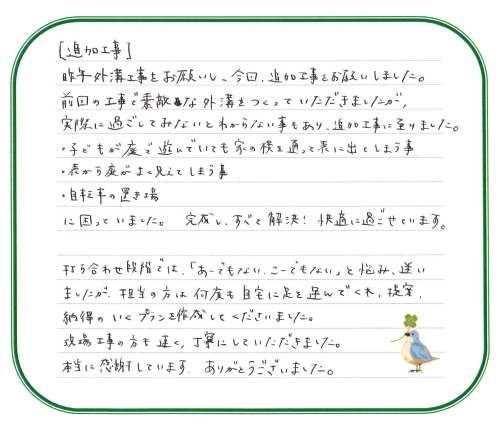 [追加工事]
昨年外溝工事をお願いし、今回、追加工事をお願いしました。
前回の工事で素敵な外溝をつくっていただきましたが、
実際に過ごしてみないとわからない事もあり、追加工事に至りました。
・子どもが庭で遊んでいても家の横を通って表に出てしまう事
・表から庭がよく見えてしまう事
・自転車の置き場
に困っていました。 完成し、すべて解決! 快適に過ごせています。
打ち合わせ段階では、「あーでもない、こーでもない」と悩み、迷い
ましたが、担当の方は何度も自宅に足を運んでくれ、提案、
納得のいくプランを作成してくださいました。
現場工事の方も速く、丁寧にしていただきました。
本当に感謝しています。ありがとうございました。